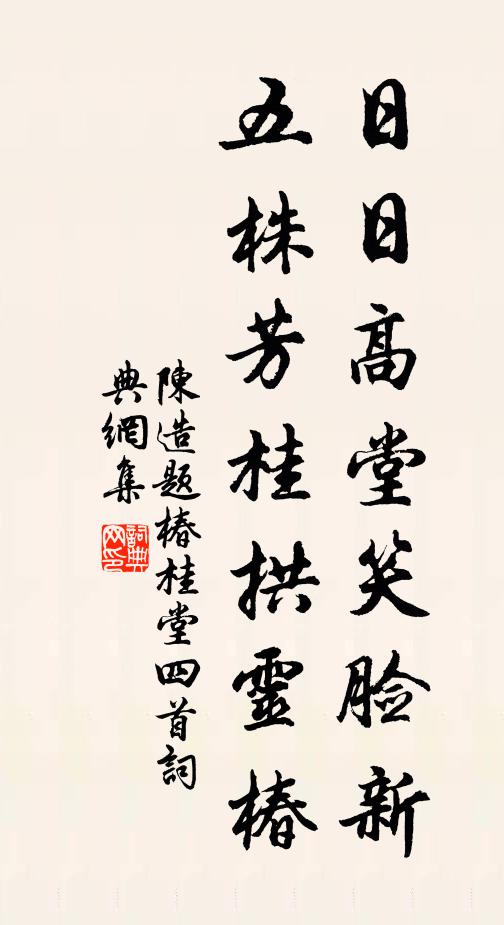 日日高堂笑脸新
五株芳桂拱靈椿
陳造題椿桂堂四首詞
典網集
詞典
网印